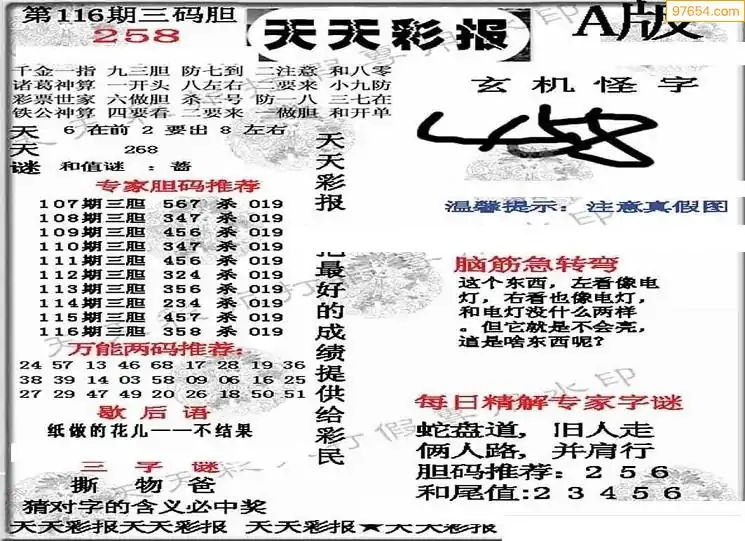 97654.com
第116期三码胆
258
天天彩报
A版
千金一指 九三胆 防七到 二注意 和八零
诸葛神算 一开头 八左右 二要来 小九防
彩票世家 六做胆 杀二号 防一八 三七在
铁公神算 四要看 二要来 一做胆 和开单
天 6 在前 2 要出 8 左右
天 268
谜 和值谜 :蕃
专家胆码推荐
107期三胆 567 杀 019
108期三胆 347 杀 019
109期三胆 456 杀 019
110期三胆 347 杀 019
111期三胆 456 杀 019
112期三胆 324 杀 019
113期三胆 356 杀 019
114期三胆 234 杀 019
115期三胆 457 杀 019
116期三胆 358 杀 019
万能两码推荐:
24 57 13 46 68 17 28 19 36
38 39 14 03 58 09 06 16 25
27 29 47 49 20 26 18 50 51
歇后语
纸做的花儿——不结果
三字谜
撕 物 爸
猜对字的含义必中奖
天天彩报
把最好的成绩提供给彩民
玄机怪字
温馨提示: 注意真假图
脑筋急转弯
这个东西,左看像电
灯,右看也像电灯,
和电灯没什么两样
。但它就是不会亮,
這是啥东西呢?
每日精解专家字谜
蛇盘道, 旧人走
俩人路, 并肩行
胆码推荐:256
和尾值:23456
天天彩报天天彩报 天天彩报★天天彩报